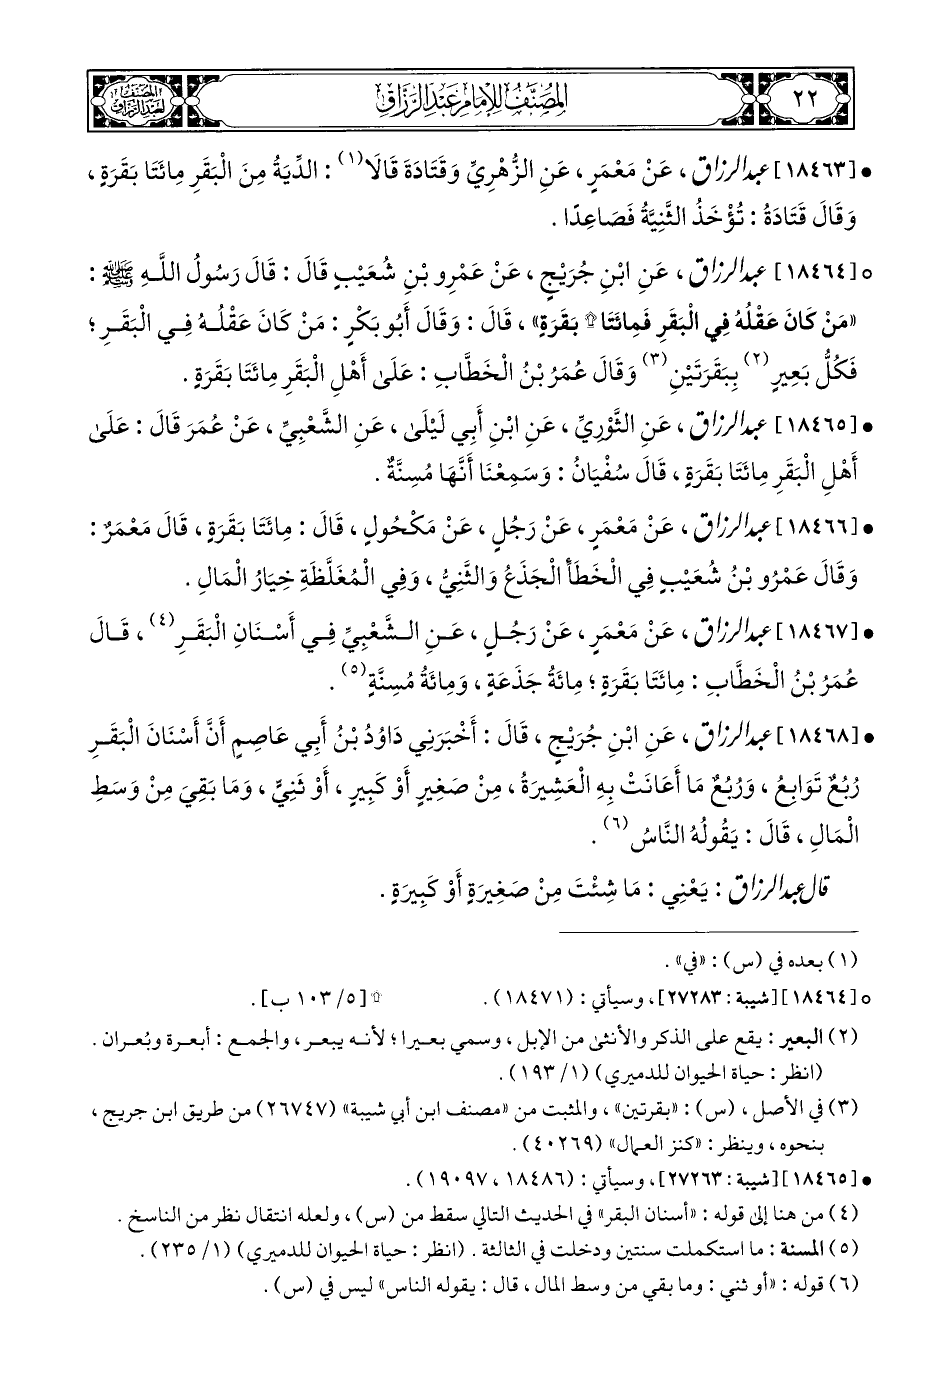 ٢٢
المُصَنَّفُ لِلإِمَامِ عَبْدِ الرَّزَّاقِ
المصنف لعبد الرزاق
• [١٨٤٦٣] عبد الرزاق ، عَنْ مَعْمَرٍ ، عَنِ الزُّهْرِيِّ وَقَتَادَةَ قَالَا(١) : الدِّيَةُ مِنَ الْبَقَرِ مِائَتَا بَقَرَةٍ ،
وَقَالَ قَتَادَةُ : تُؤْخَذُ الثَّنِيَّةُ فَصَاعِدًا .
○ [١٨٤٦٤] عبد الرزاق ، عَنِ ابْنِ جُرَيْجٍ ، عَنْ عَمْرِو بْنِ شُعَيْبٍ قَالَ : قَالَ رَسُولُ اللَّهِ ﷺ :
«مَنْ كَانَ عَقْلُهُ فِي الْبَقَرِ فَمِائَتَا۩ بَقَرَةٍ» ، قَالَ : وَقَالَ أَبُو بَكْرٍ : مَنْ كَانَ عَقْلُهُ فِي الْبَقَرِ ؛
فَكُلُّ بَعِيرٍ(٢) بِبَقَرَتَيْنِ(٣) وَقَالَ عُمَرُ بْنُ الْخَطَّابِ : عَلَى أَهْلِ الْبَقَرِ مِائَتَا بَقَرَةٍ .
• [١٨٤٦٥] عبد الرزاق ، عَنِ الثَّوْرِيِّ ، عَنِ ابْنِ أَبِي لَيْلَى ، عَنِ الشَّعْبِيِّ ، عَنْ عُمَرَ قَالَ : عَلَى
أَهْلِ الْبَقَرِ مِائَتَا بَقَرَةٍ ، قَالَ سُفْيَانُ : وَسَمِعْنَا أَنَّهَا مُسِنَّةٌ .
• [١٨٤٦٦] عبد الرزاق ، عَنْ مَعْمَرٍ ، عَنْ رَجُلٍ ، عَنْ مَكْحُولٍ ، قَالَ : مِائَتَا بَقَرَةٍ ، قَالَ مَعْمَرٌ :
وَقَالَ عَمْرُو بْنُ شُعَيْبٍ فِي الْخَطَأِ الْجَذَعُ وَالثَّنِيُّ ، وَفِي الْمُغَلَّظَةِ خِيَارُ الْمَالِ .
• [١٨٤٦٧] عبد الرزاق ، عَنْ مَعْمَرٍ ، عَنْ رَجُلٍ ، عَنِ الشَّعْبِيِّ فِي أَسْنَانِ الْبَقَرِ(٤) ، قَالَ
عُمَرُ بْنُ الْخَطَّابِ : مِائَتَا بَقَرَةٍ ؛ مِائَةُ جَذَعَةٍ ، وَمِائَةُ مُسِنَّةٍ(٥) .
• [١٨٤٦٨] عبد الرزاق ، عَنِ ابْنِ جُرَيْجٍ ، قَالَ : أَخْبَرَنِي دَاوُدُ بْنُ أَبِي عَاصِمٍ أَنَّ أَسْنَانَ الْبَقَرِ
رُبُعٌ تَوَابِعُ ، وَرُبُعٌ مَا أَعَانَتْ بِهِ الْعَشِيرَةُ ، مِنْ صَغِيرٍ أَوْ كَبِيرٍ ، أَوْ ثَنِيٍّ ، وَمَا بَقِيَ مِنْ وَسَطِ
الْمَالِ ، قَالَ : يَقُولُهُ النَّاسُ(٦) .
قال عبد الرزاق : يَعْنِي : مَا شِئْتَ مِنْ صَغِيرَةٍ أَوْ كَبِيرَةٍ .
(١) بعده في (س) : «في» .
○ [١٨٤٦٤] [شيبة : ٢٧٢٨٣] ، وسيأتي : (١٨٤٧١) . ۩ [٥/ ١٠٣ ب] .
(٢) البعير : يقع على الذكر والأنثى من الإبل ، وسمي بعيرا ؛ لأنه يبعر ، والجمع : أبعرة وبُعران .
(انظر : حياة الحيوان للدميري) (١/ ١٩٣) .
(٣) في الأصل ، (س) : «بقرتين» ، والمثبت من «مصنف ابن أبي شيبة» (٢٦٧٤٧) من طريق ابن جريج ،
بنحوه ، وينظر : «كنز العمال» (٤٠٢٦٩) .
• [١٨٤٦٥] [شيبة : ٢٧٢٦٣] ، وسيأتي : (١٨٤٨٦ ، ١٩٠٩٧) .
(٤) من هنا إلى قوله : «أسنان البقر» في الحديث التالي سقط من (س) ، ولعله انتقال نظر من الناسخ .
(٥) المسنة : ما استكملت سنتين ودخلت في الثالثة . (انظر : حياة الحيوان للدميري) (١/ ٢٣٥) .
(٦) قوله : «أو ثني : وما بقي من وسط المال ، قال : يقوله الناس» ليس في (س) .